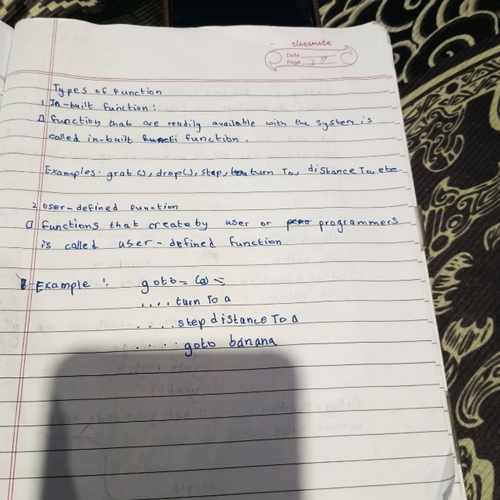 classmate
Date
Page 27
Types of function
1. In-built function:
function that are readily available with the system is
called in-built functi function.
Examples: grab (), drop(), step, turn To, distance To, etc
2. User-defined function
functions that create by user or programmers
is called user-defined function
Example : goto = (a) =
.... turn To a
.... step distance To a
.... goto banana